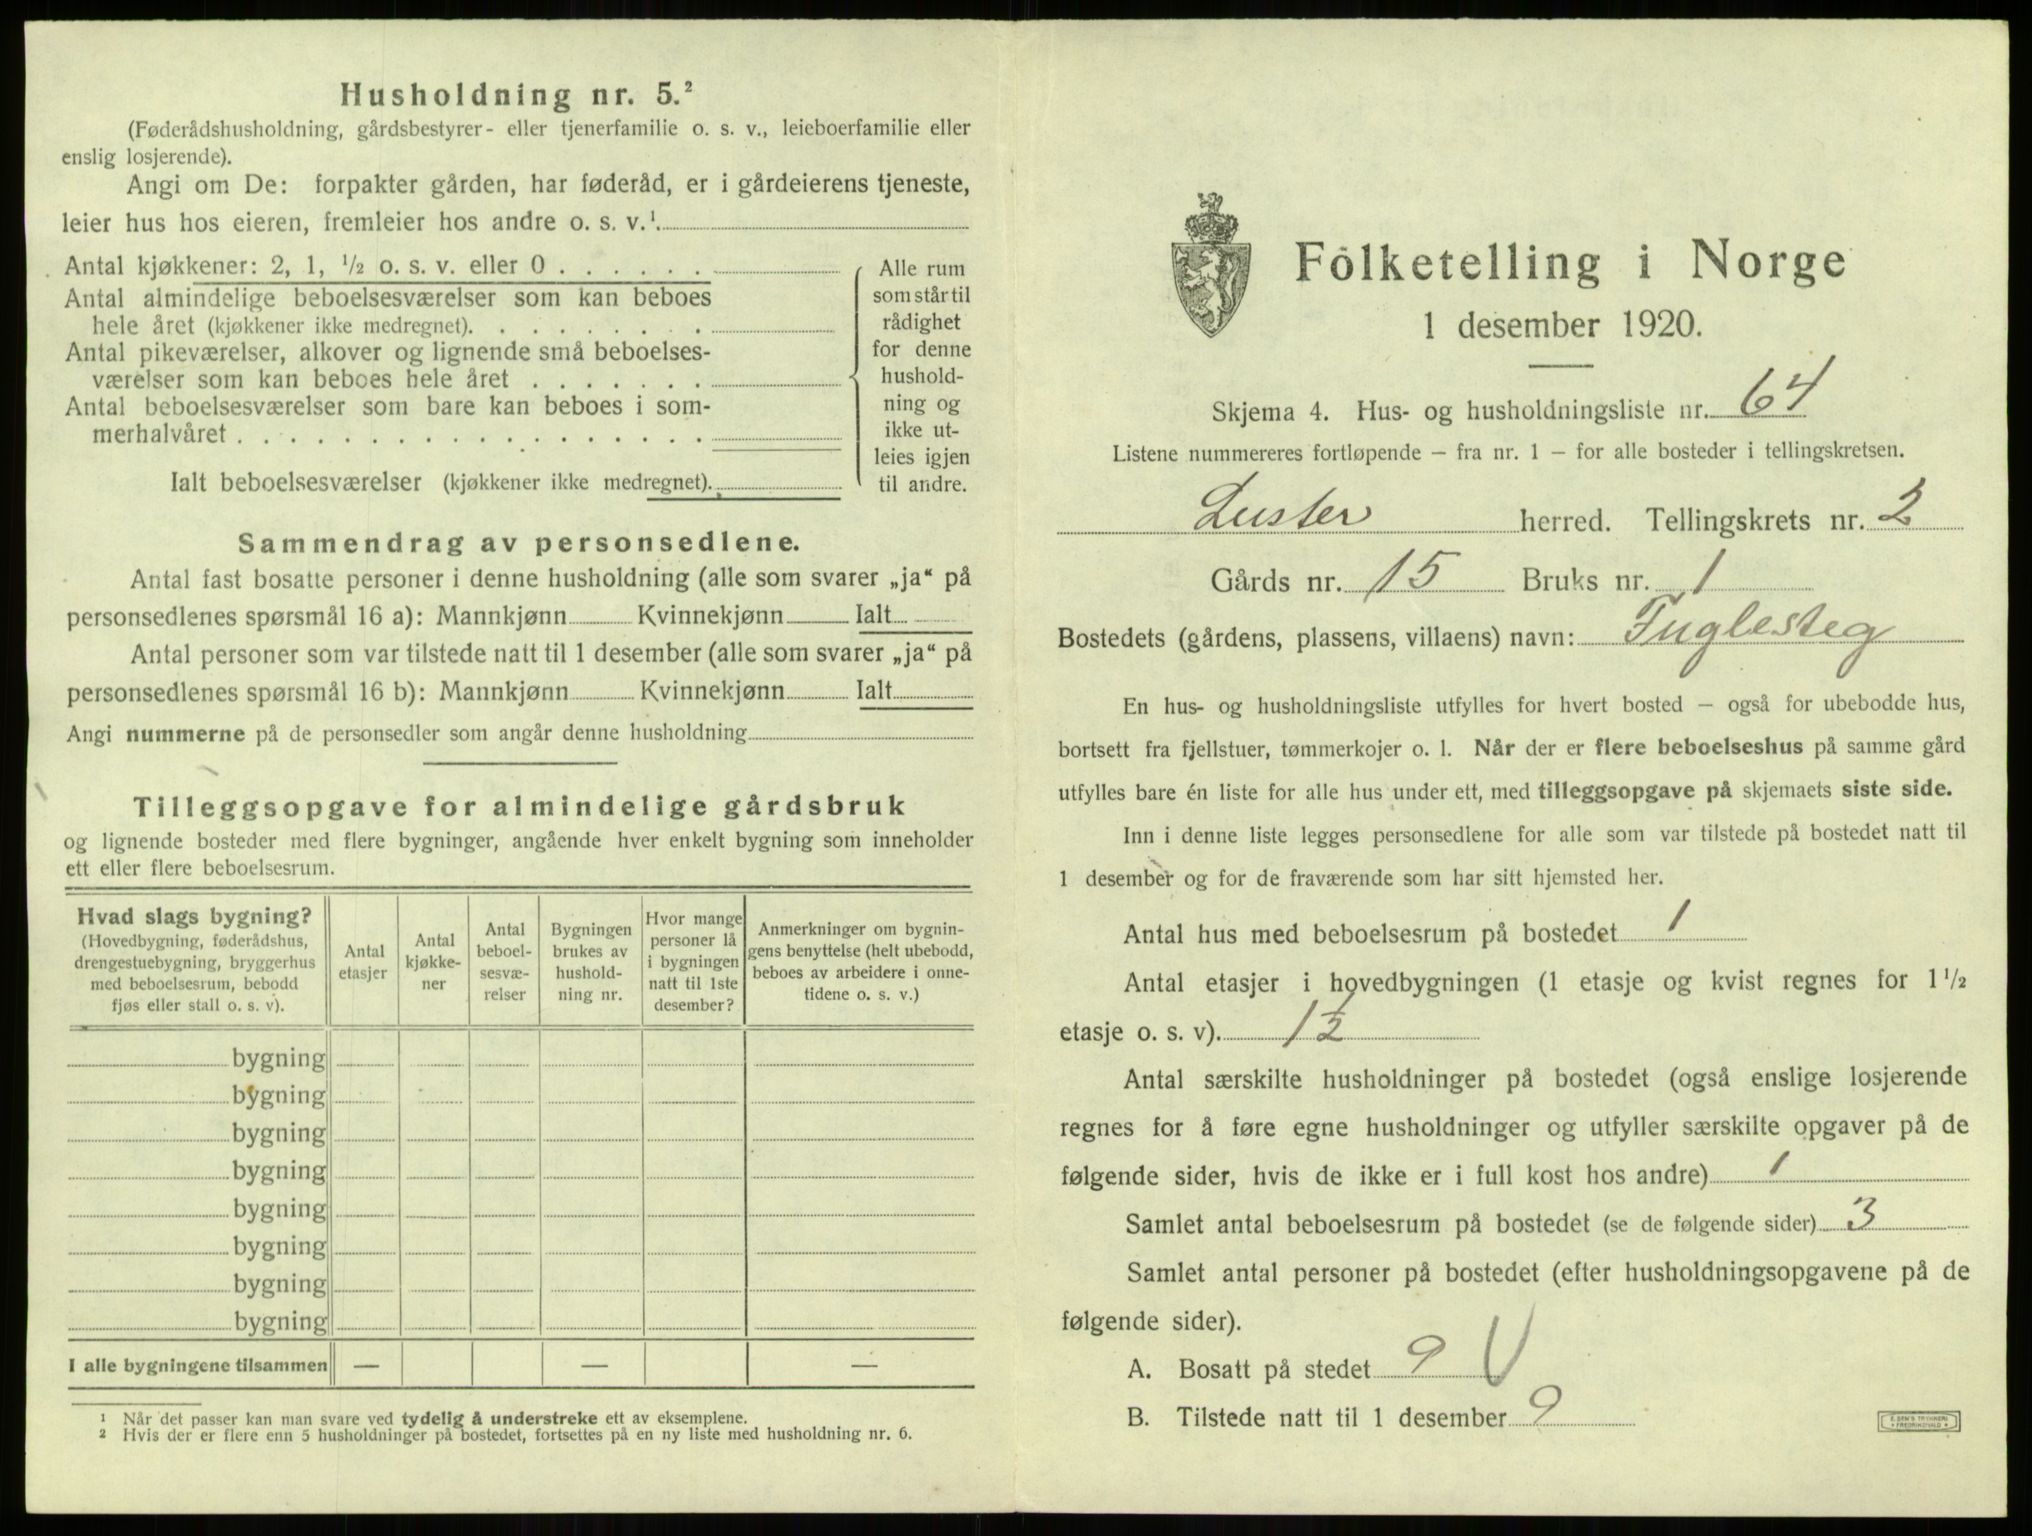 Husholdning nr. 5.²
(Føderådshusholdning, gårdsbestyrer- eller tjenerfamilie o. s. v., leieboerfamilie eller
enslig losjerende).
Angi om De: forpakter gården, har føderåd, er i gårdeierens tjeneste,
leier hus hos eieren, fremleier hos andre o. s. v.¹
Antal kjøkkener: 2, 1, ½ o. s. v. eller 0
Antal almindelige beboelsesværelser som kan beboes
hele året (kjøkkener ikke medregnet).
Antal pikeværelser, alkover og lignende små beboelses-
værelser som kan beboes hele året
Antal beboelsesværelser som bare kan beboes i som-
merhalvåret
Ialt beboelsesværelser (kjøkkener ikke medregnet).
Alle rum
som står til
rådighet
for denne
hushold-
ning og
ikke ut-
leies igjen
til andre.
Sammendrag av personsedlene.
Antal fast bosatte personer i denne husholdning (alle som svarer „ja“ på
personsedlenes spørsmål 16 a): Mannkjønn Kvinnekjønn Ialt
Antal personer som var tilstede natt til 1 desember (alle som svarer „ja“ på
personsedlenes spørsmål 16 b): Mannkjønn Kvinnekjønn Ialt
Angi nummerne på de personsedler som angår denne husholdning
Tilleggsopgave for almindelige gårdsbruk
og lignende bosteder med flere bygninger, angående hver enkelt bygning som inneholder
ett eller flere beboelsesrum.
Hvad slags bygning?
(Hovedbygning, føderådshus,
drengestuebygning, bryggerhus
med beboelsesrum, bebodd
fjøs eller stall o. s. v).
Antal
etasjer
Antal
kjøkke-
ner
Antal
beboel-
sesvæ-
relser
Bygningen
brukes av
hushold-
ning nr.
Hvor mange
personer lå
i bygningen
natt til 1ste
desember?
Anmerkninger om bygnin-
gens benyttelse (helt ubebodd,
beboes av arbeidere i onne-
tidene o. s. v.)
bygning
bygning
bygning
bygning
bygning
bygning
bygning
bygning
I alle bygningene tilsammen — — —
¹ Når det passer kan man svare ved tydelig å understreke ett av eksemplene.
² Hvis der er flere enn 5 husholdninger på bostedet, fortsettes på en ny liste med husholdning nr. 6.
Folketelling i Norge
1 desember 1920.
Skjema 4. Hus- og husholdningsliste nr. 64
Listene nummereres fortløpende – fra nr. 1 – for alle bosteder i tellingskretsen.
Luster herred. Tellingskrets nr. 2
Gårds nr. 15 Bruks nr. 1
Bostedets (gårdens, plassens, villaens) navn: Fuglesteg
En hus- og husholdningsliste utfylles for hvert bosted – også for ubebodde hus,
bortsett fra fjellstuer, tømmerkojer o. l. Når der er flere beboelseshus på samme gård
utfylles bare én liste for alle hus under ett, med tilleggsopgave på skjemaets siste side.
Inn i denne liste legges personsedlene for alle som var tilstede på bostedet natt til
1 desember og for de fraværende som har sitt hjemsted her.
Antal hus med beboelsesrum på bostedet 1
Antal etasjer i hovedbygningen (1 etasje og kvist regnes for 1 ½
etasje o. s. v). 1½
Antal særskilte husholdninger på bostedet (også enslige losjerende
regnes for å føre egne husholdninger og utfyller særskilte opgaver på de
følgende sider, hvis de ikke er i full kost hos andre) 1
Samlet antal beboelsesrum på bostedet (se de følgende sider) 3
Samlet antal personer på bostedet (efter husholdningsopgavene på de
følgende sider).
A. Bosatt på stedet 9
B. Tilstede natt til 1 desember 9